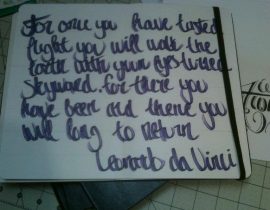 For once you have tasted
flight you will walk the
earth with your eyes turned
skyward. for there you
have been and there you
will long to return
Leonardo da Vinci